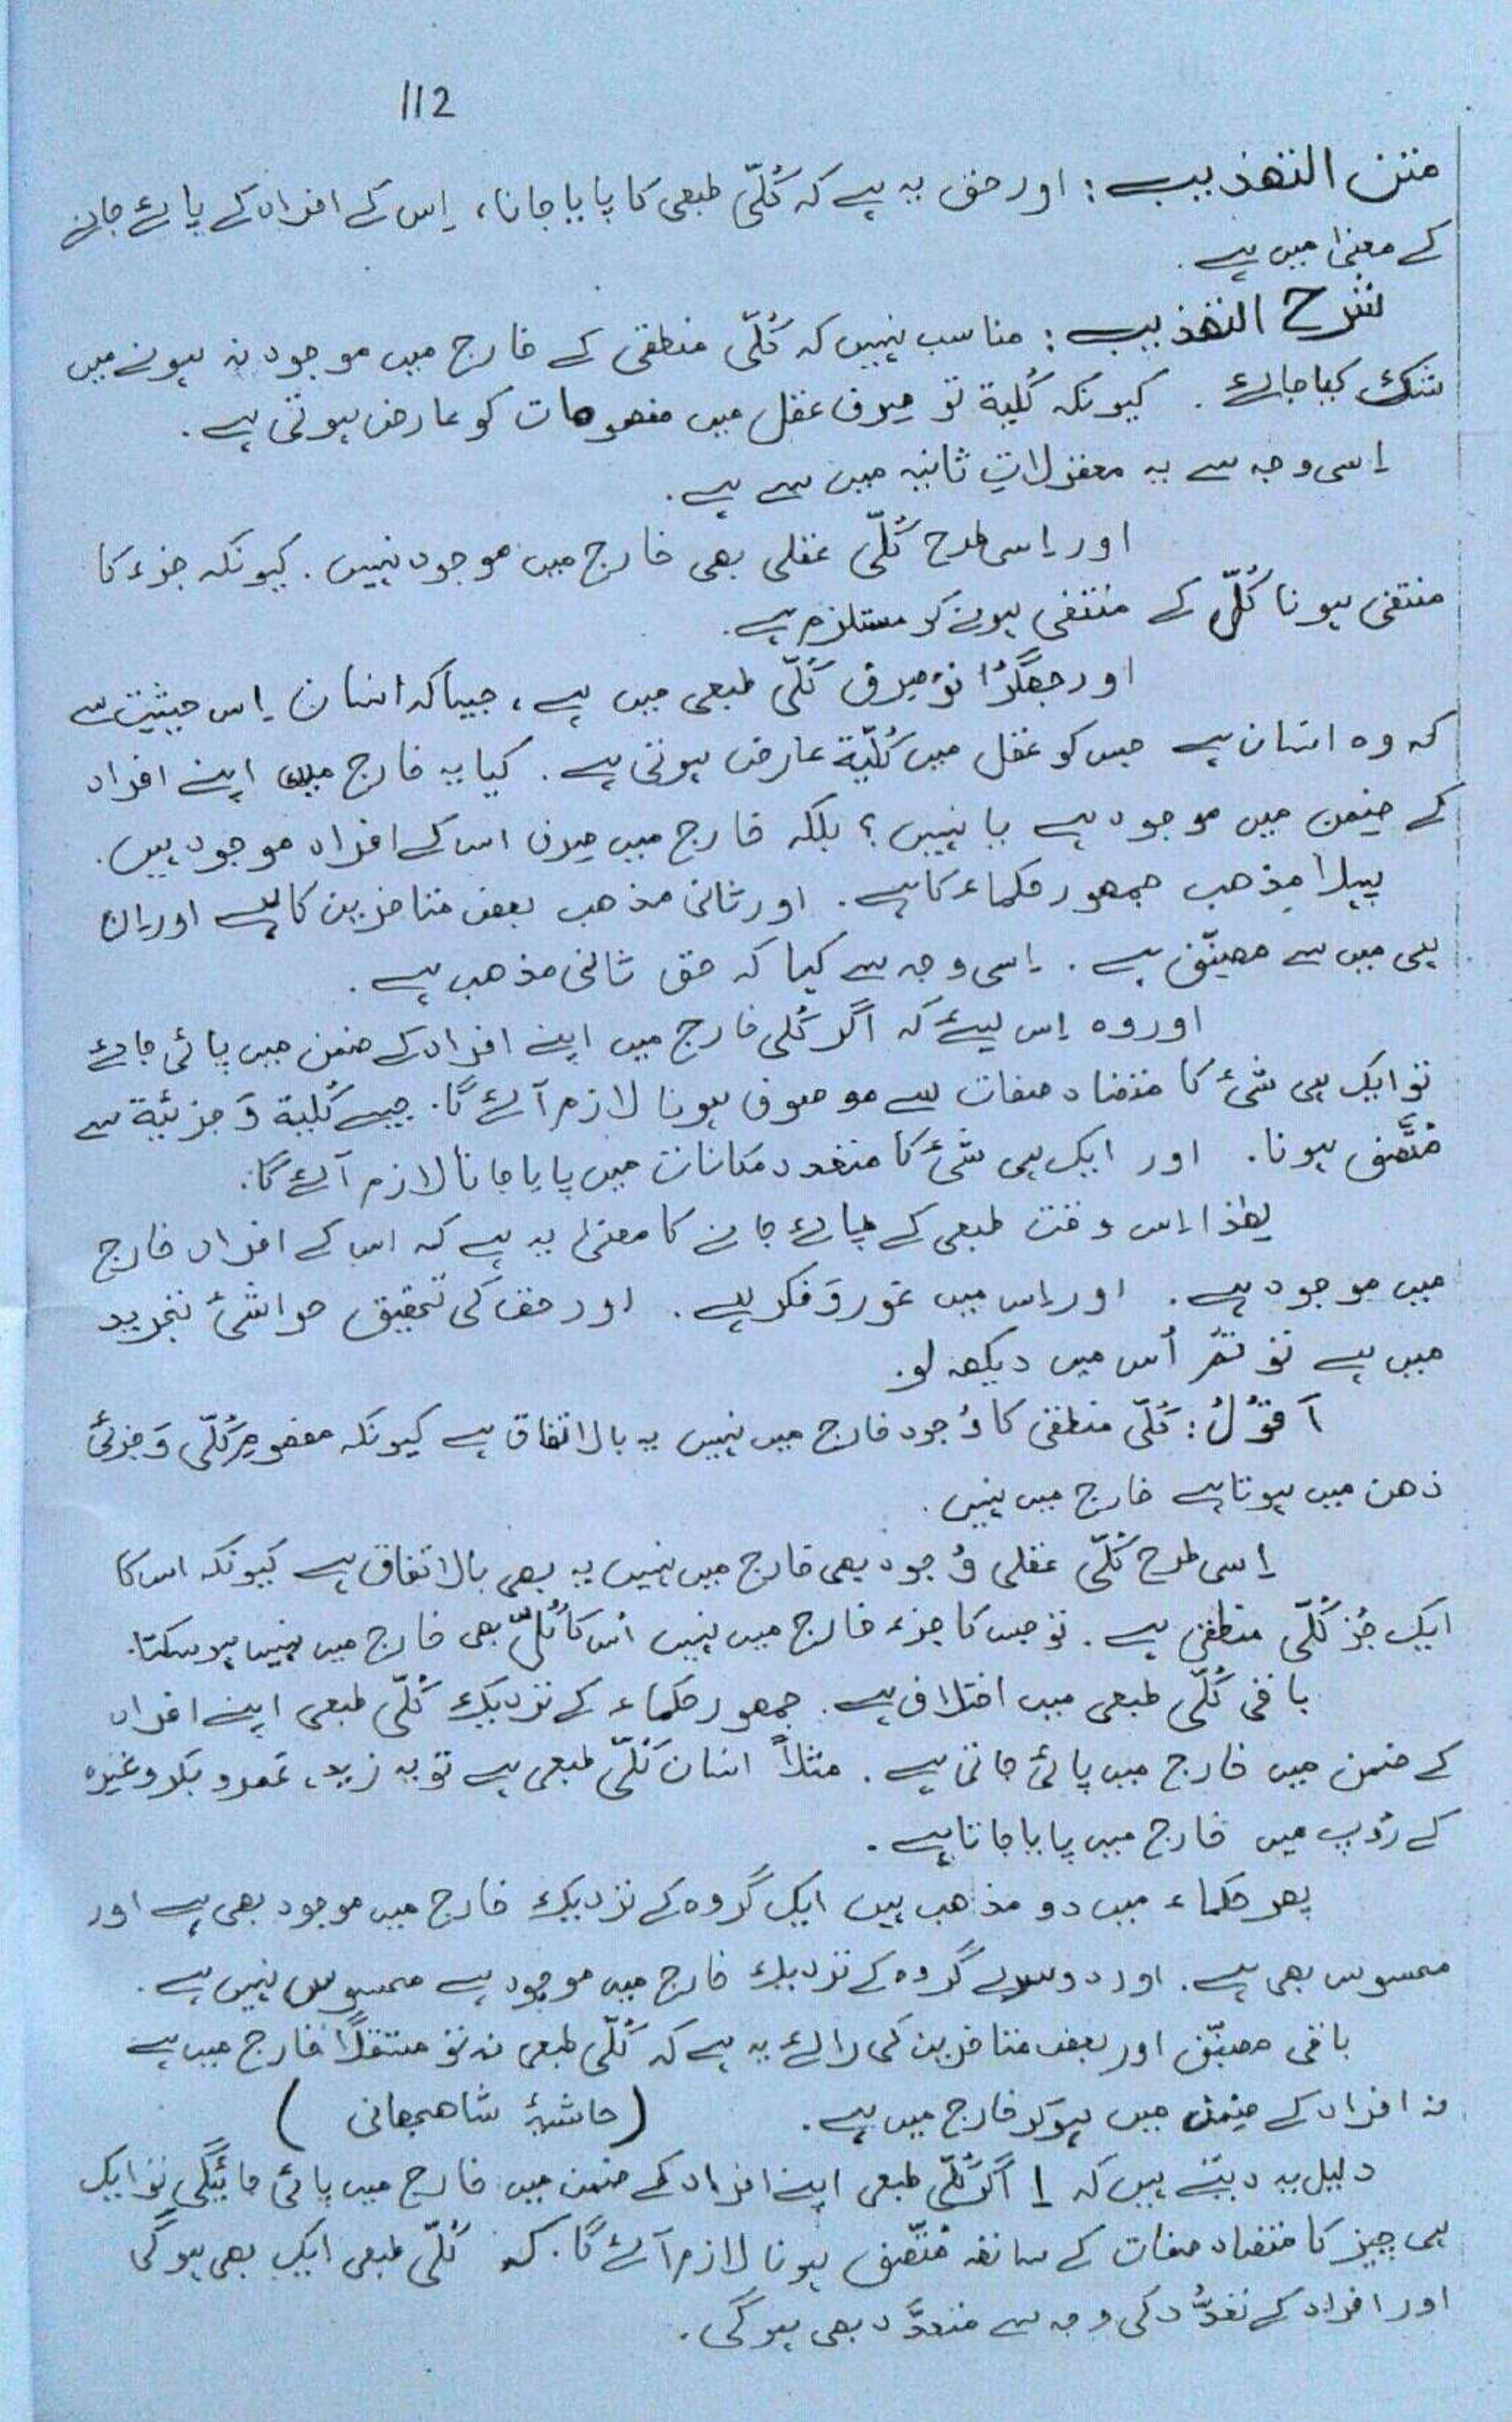 112
متن التھذیب : اور حق یہ ہے کہ کُلّی طبعی کا پایا جانا، اِس کے افراد کے پائے جانے
کے معنیٰ میں ہے .
شرح التھذیب : مناسب نہیں کہ کُلّی منطقی کے خارج میں موجود نہ ہونے میں
شک کیا جائے . کیونکہ کُلیة تو صِرف عقل میں مفہومات کو عارض ہوتی ہے .
اِسی وجہ سے یہ معقولاتِ ثانیہ میں سے ہے .
اور اِسی طرح کُلّی عقلی بھی خارج میں موجود نہیں . کیونکہ جزء کا
منتفی ہونا کُلّ کے منتفی ہونے کو مستلزم ہے .
اور جھگڑا تو صِرف کُلّی طبعی میں ہے ، جیسا کہ انسان اِس حیثیت سے
کہ وہ انسان ہے جس کو عقل میں کُلیّة عارض ہوتی ہے . کیا یہ خارج میں اپنے افراد
کے ضِمن میں موجود ہے یا نہیں ؟ بلکہ خارج میں صِرف اس کے افراد موجود ہیں .
پہلا مذھب جمھور حکماء کا ہے . اور ثانی مذھب بعض متاخرین کا ہے اور اِن
ہی میں سے مصنِّف ہے . اِسی وجہ سے کہا کہ حق ثانی مذھب ہے .
اور وہ اِس لیئے کہ اگر کُلی خارج میں اپنے افراد کے ضمن میں پائی جائے
تو ایک ہی شئ کا متضاد صفات سے موصوف ہونا لازم آئے گا . جیسے کُلیة وَ جزئیة سے
مُتَّصِف ہونا . اور ایک ہی شئ کا متعدد مکانات میں پایا جانا لازم آئے گا .
لھٰذا اِس وقت طبعی کے پائے جانے کا معنیٰ یہ ہے کہ اس کے افراد خارج
میں موجود ہے . اور اِس میں غور وَ فکر ہے . اور حق کی تحقیق حواشئ تجرید
میں ہے تو تُم اُس میں دیکھ لو .
اَقُوْلُ : کُلّی منطقی کا وُجود خارج میں نہیں یہ بالاتفاق ہے کیونکہ مفھومِ کُلّی وَ جزئی
ذھن میں ہوتا ہے خارج میں نہیں .
اِسی طرح کُلّی عقلی وُجود بھی خارج میں نہیں یہ بھی بالاتفاق ہے کیونکہ اس کا
ایک جُز کُلّی منطقی ہے . تو جس کا جزء خارج میں نہیں اُس کا کُلّ بھی خارج میں نہیں ہو سکتا .
باقی کُلّی طبعی میں اختلاف ہے . جمھور حکماء کے نزدیک کُلّی طبعی اپنے افراد
کے ضمن میں خارج میں پائی جاتی ہے . مثلاً انسان کُلّی طبعی ہے تو یہ زید ، عَمرو بکر وغیرہ
کے رُوپ میں خارج میں پایا جاتا ہے .
پھر حکماء میں دو مذاھب ہیں ایک گروہ کے نزدیک خارج میں موجود بھی ہے اور
محسوس بھی ہے . اور دوسرے گروہ کے نزدیک خارج میں موجود ہے محسوس نہیں ہے .
باقی مصنِّف اور بعض متاخرین کی رائے یہ ہے کہ کُلّی طبعی نہ تو مستقلاً خارج میں ہے
نہ افراد کے ضِمن میں ہوکر خارج میں ہے . (حاشیۂ شاھجھانی)
دلیل یہ دیتے ہیں کہ 1 اگر کُلّی طبعی اپنے افراد کے ضمن میں خارج میں پائی جائیگی تو ایک
ہی چیز کا متضاد صفات کے ساتھ مُتّصِف ہونا لازم آئے گا . کہ کُلّی طبعی ایک بھی ہوگی
اور افراد کے تعدُّد کی وجہ سے متعدَّد بھی ہوگی .